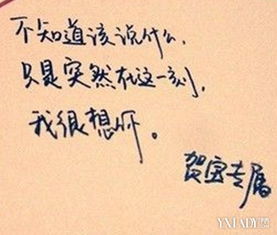 不知道该说什么,
只是突然在这一刻,
我很想你。
贺宝专属
YXLADY